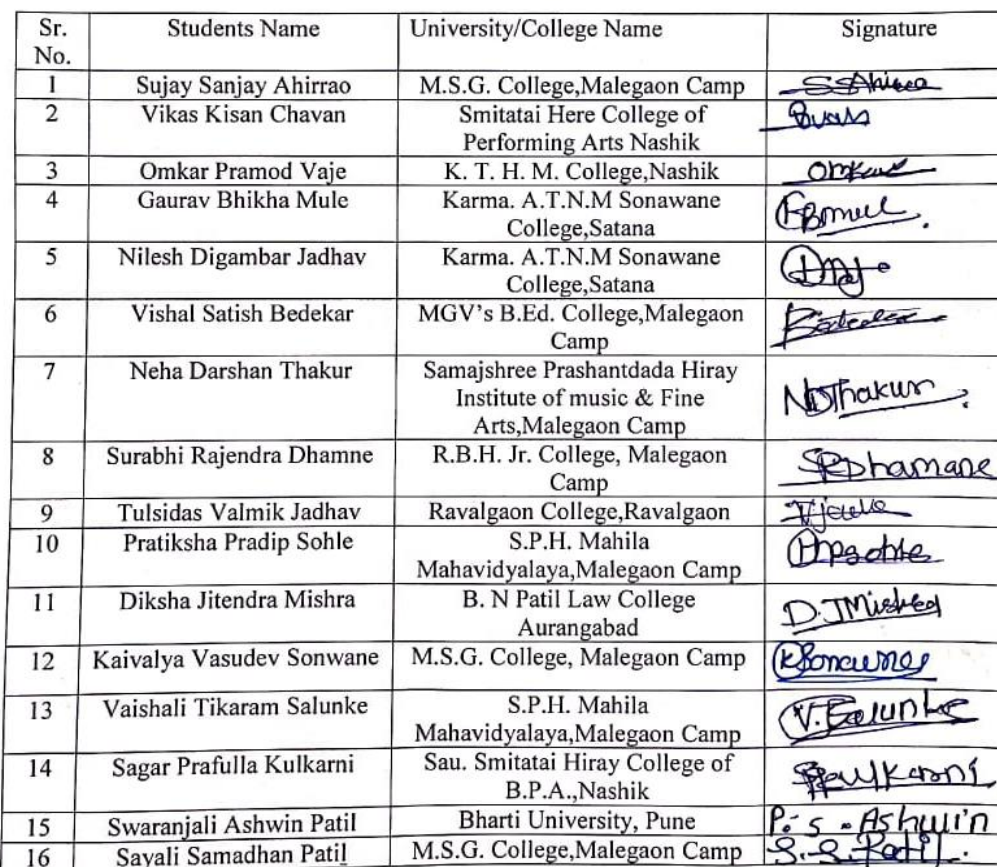 Sr. No. Students Name University/College Name Signature
1 Sujay Sanjay Ahirrao M.S.G. College,Malegaon Camp
2 Vikas Kisan Chavan Smitatai Here College of
Performing Arts Nashik
3 Omkar Pramod Vaje K. T. H. M. College,Nashik Omkar
4 Gaurav Bhikha Mule Karma. A.T.N.M Sonawane
College,Satana
5 Nilesh Digambar Jadhav Karma. A.T.N.M Sonawane
College,Satana
6 Vishal Satish Bedekar MGV's B.Ed. College,Malegaon
Camp
7 Neha Darshan Thakur Samajshree Prashantdada Hiray
Institute of music & Fine
Arts,Malegaon Camp
NDThakur
8 Surabhi Rajendra Dhamne R.B.H. Jr. College, Malegaon
Camp
SRDhamane
9 Tulsidas Valmik Jadhav Ravalgaon College,Ravalgaon
10 Pratiksha Pradip Sohle S.P.H. Mahila
Mahavidyalaya,Malegaon Camp
11 Diksha Jitendra Mishra B. N Patil Law College
Aurangabad
D.JMishra
12 Kaivalya Vasudev Sonwane M.S.G. College, Malegaon Camp
13 Vaishali Tikaram Salunke S.P.H. Mahila
Mahavidyalaya,Malegaon Camp
V.Salunke
14 Sagar Prafulla Kulkarni Sau. Smitatai Hiray College of
B.P.A.,Nashik
15 Swaranjali Ashwin Patil Bharti University, Pune P. S. Ashwin
16 Sayali Samadhan Patil M.S.G. College,Malegaon Camp S.S Patil.